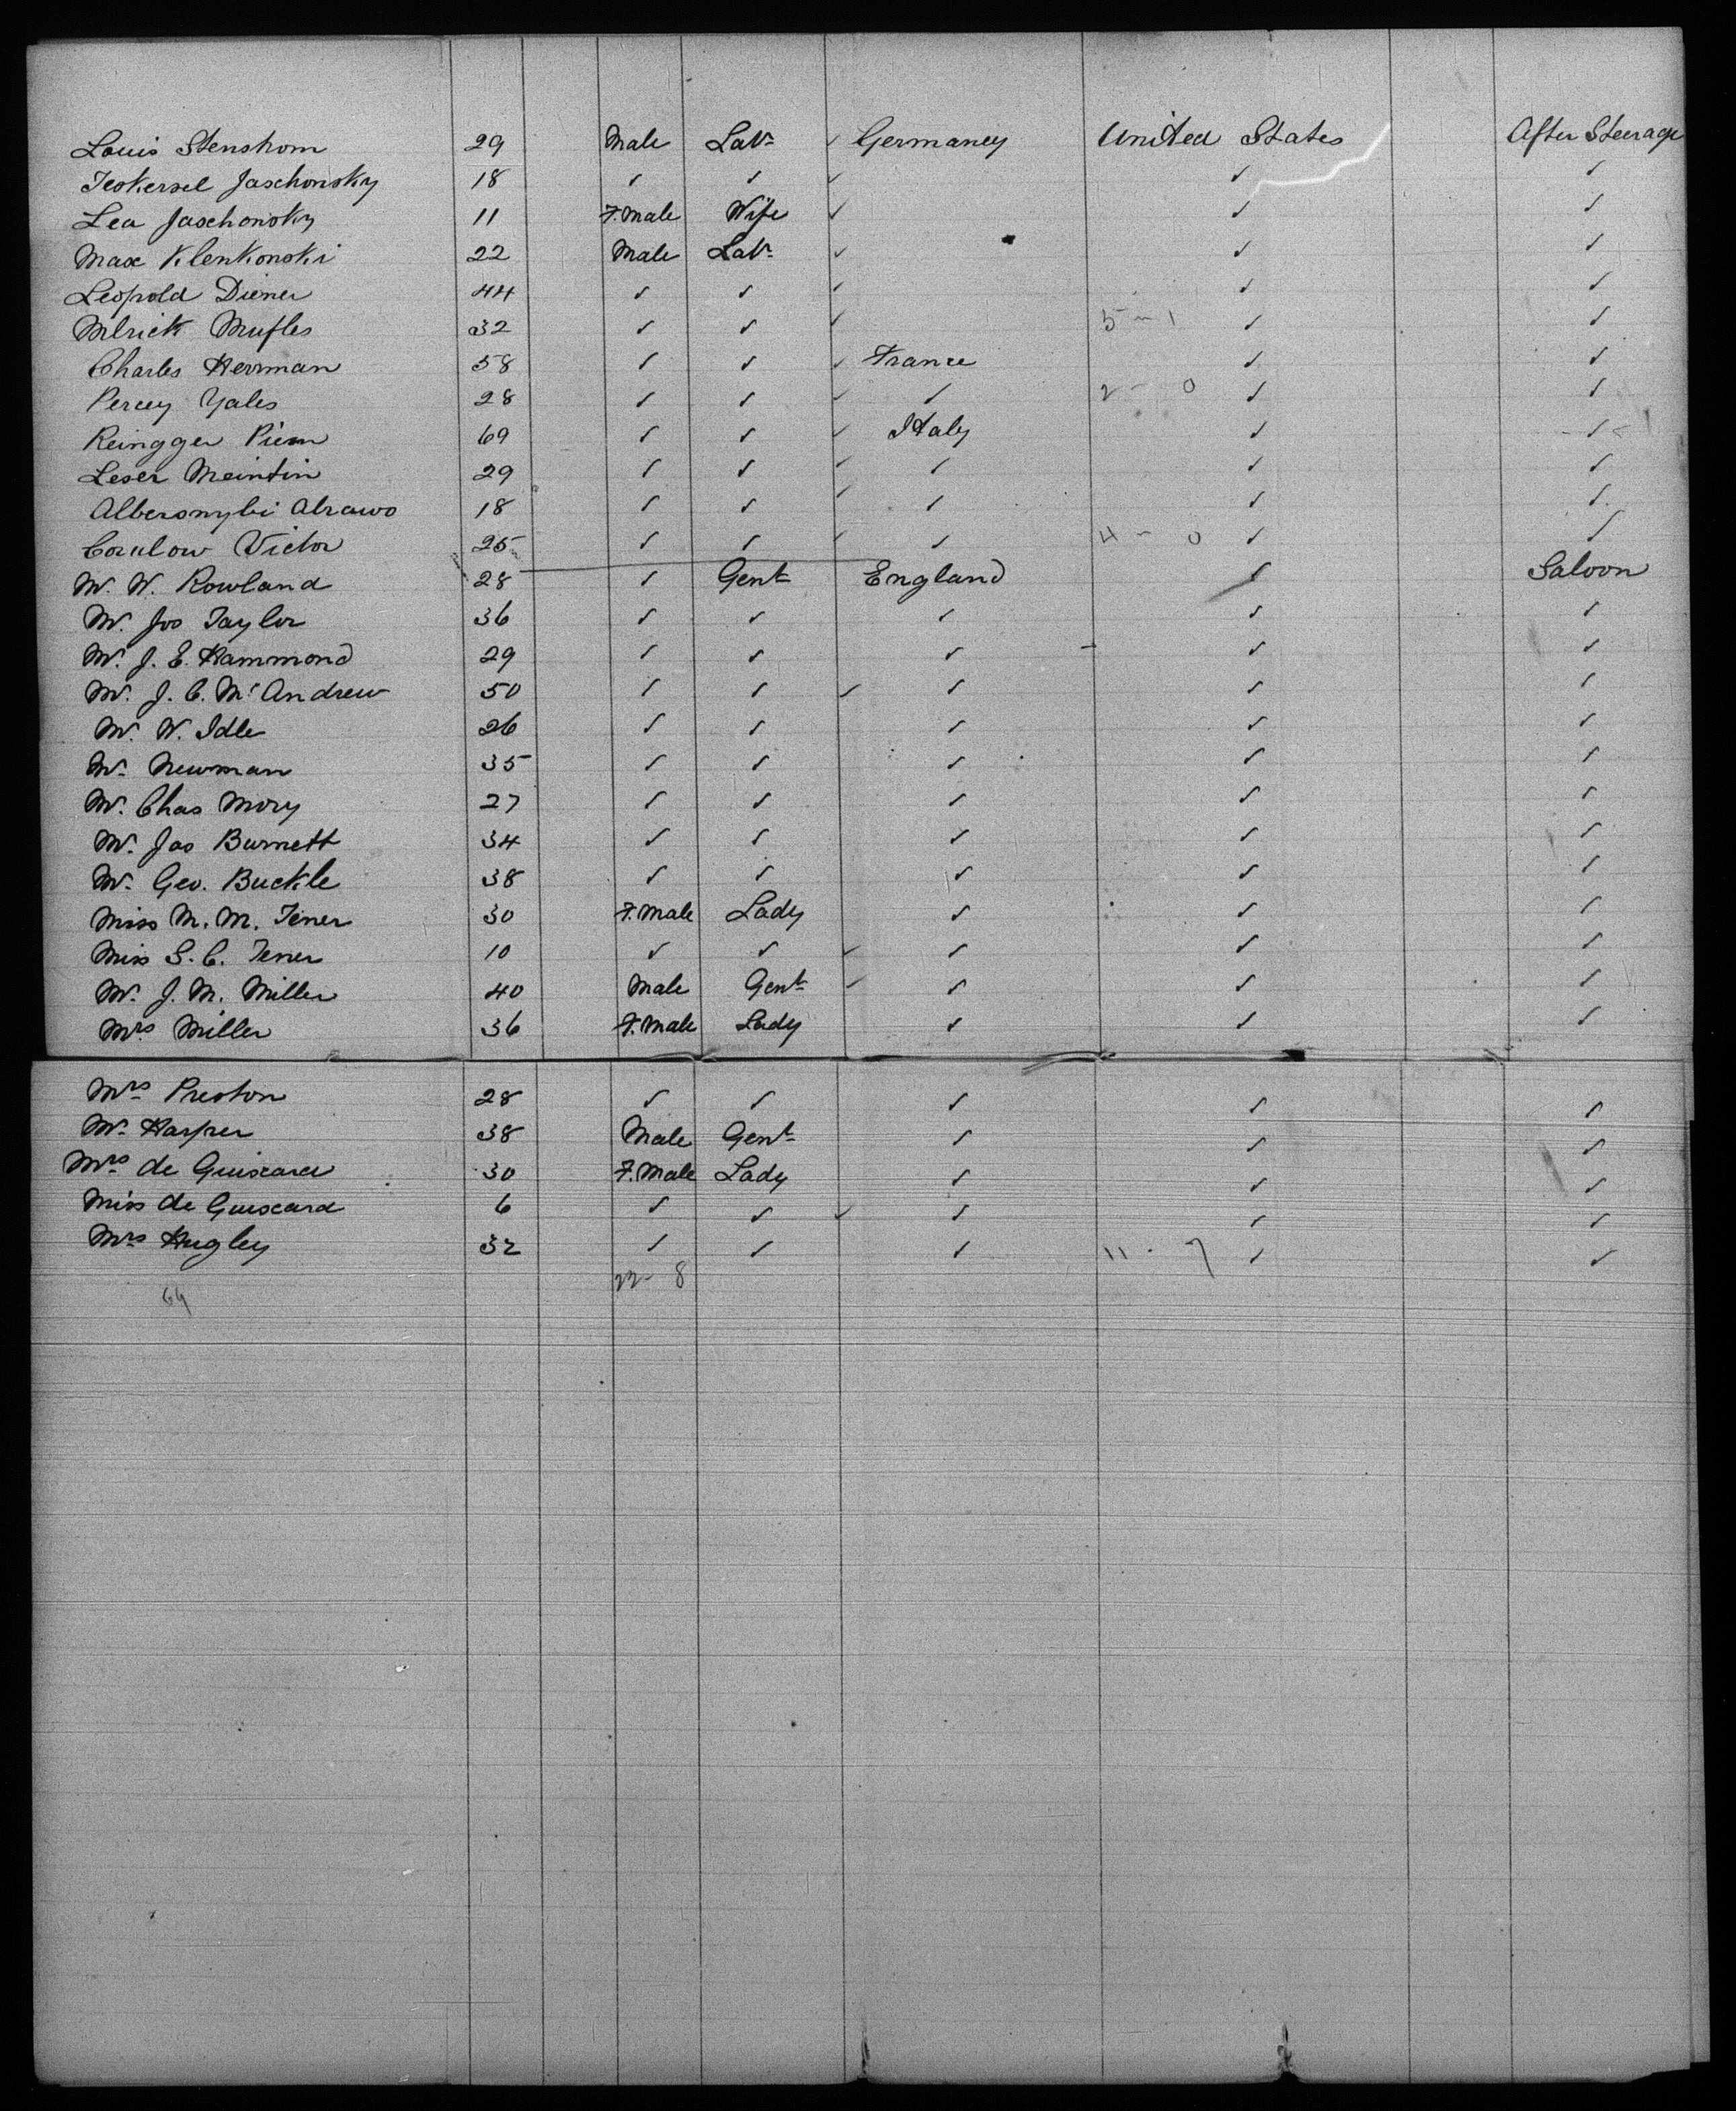 Louis Stenshom 29 Male Labr ✓ Germaney United States After Steerage
Jeokersel Jaschonsky 18 ✓ ✓ ✓ ✓ ✓
Lea Jaschonsky 11 F.Male Wife ✓ ✓ ✓
Max Klenkonski 22 Male Labr ✓ ✓ ✓
Leopold Diener 44 ✓ ✓ ✓ ✓ ✓
Mufles 32 ✓ ✓ ✓ 5 - 1 ✓ ✓
Charles Herrman 58 ✓ ✓ ✓ France ✓ ✓
Percey Yales 28 ✓ ✓ ✓ ✓ 2 - 0 ✓ ✓
Reingger 69 ✓ ✓ ✓ Italy ✓ ✓
Leser Meintin 29 ✓ ✓ ✓ ✓ ✓ ✓
18 ✓ ✓ ✓ ✓ ✓ ✓
Victor 25 ✓ ✓ ✓ ✓ 4 - 0 ✓ ✓
Mr. W. Rowland 28 ✓ Gent England ✓ Saloon
Mr. Jos Taylor 36 ✓ ✓ ✓ ✓ ✓
Mr. J. E. Hammond 29 ✓ ✓ ✓ - ✓ ✓
Mr. J. C. McAndrew 50 ✓ ✓ ✓ ✓ ✓ ✓
Mr. W. Idle 26 ✓ ✓ ✓ ✓ ✓
Mr. Newman 35 ✓ ✓ ✓ ✓ ✓
Mr. Chas Mory 27 ✓ ✓ ✓ ✓ ✓
Mr. Jas Burnett 34 ✓ ✓ ✓ ✓ ✓
Mr. Geo. Buckle 38 ✓ ✓ ✓ ✓ ✓
Miss M. M. Tener 30 F.Male Lady ✓ ✓ ✓
Miss S. C. Tener 10 ✓ ✓ ✓ ✓ ✓ ✓
Mr. J. M. Miller 40 Male Gent ✓ ✓ ✓ ✓
Mrs Miller 36 F.Male Lady ✓ ✓ ✓
Mrs Preston 28 ✓ ✓ ✓ ✓ ✓
Mr. Harper 38 Male Gent ✓ ✓ ✓
Mrs de Guiscard 30 F.Male Lady ✓ ✓ ✓
Miss de Guiscard 6 ✓ ✓ ✓ ✓ ✓ ✓
Mrs Hugley 32 ✓ ✓ ✓ 11 - 7 ✓ ✓
64 22 - 8